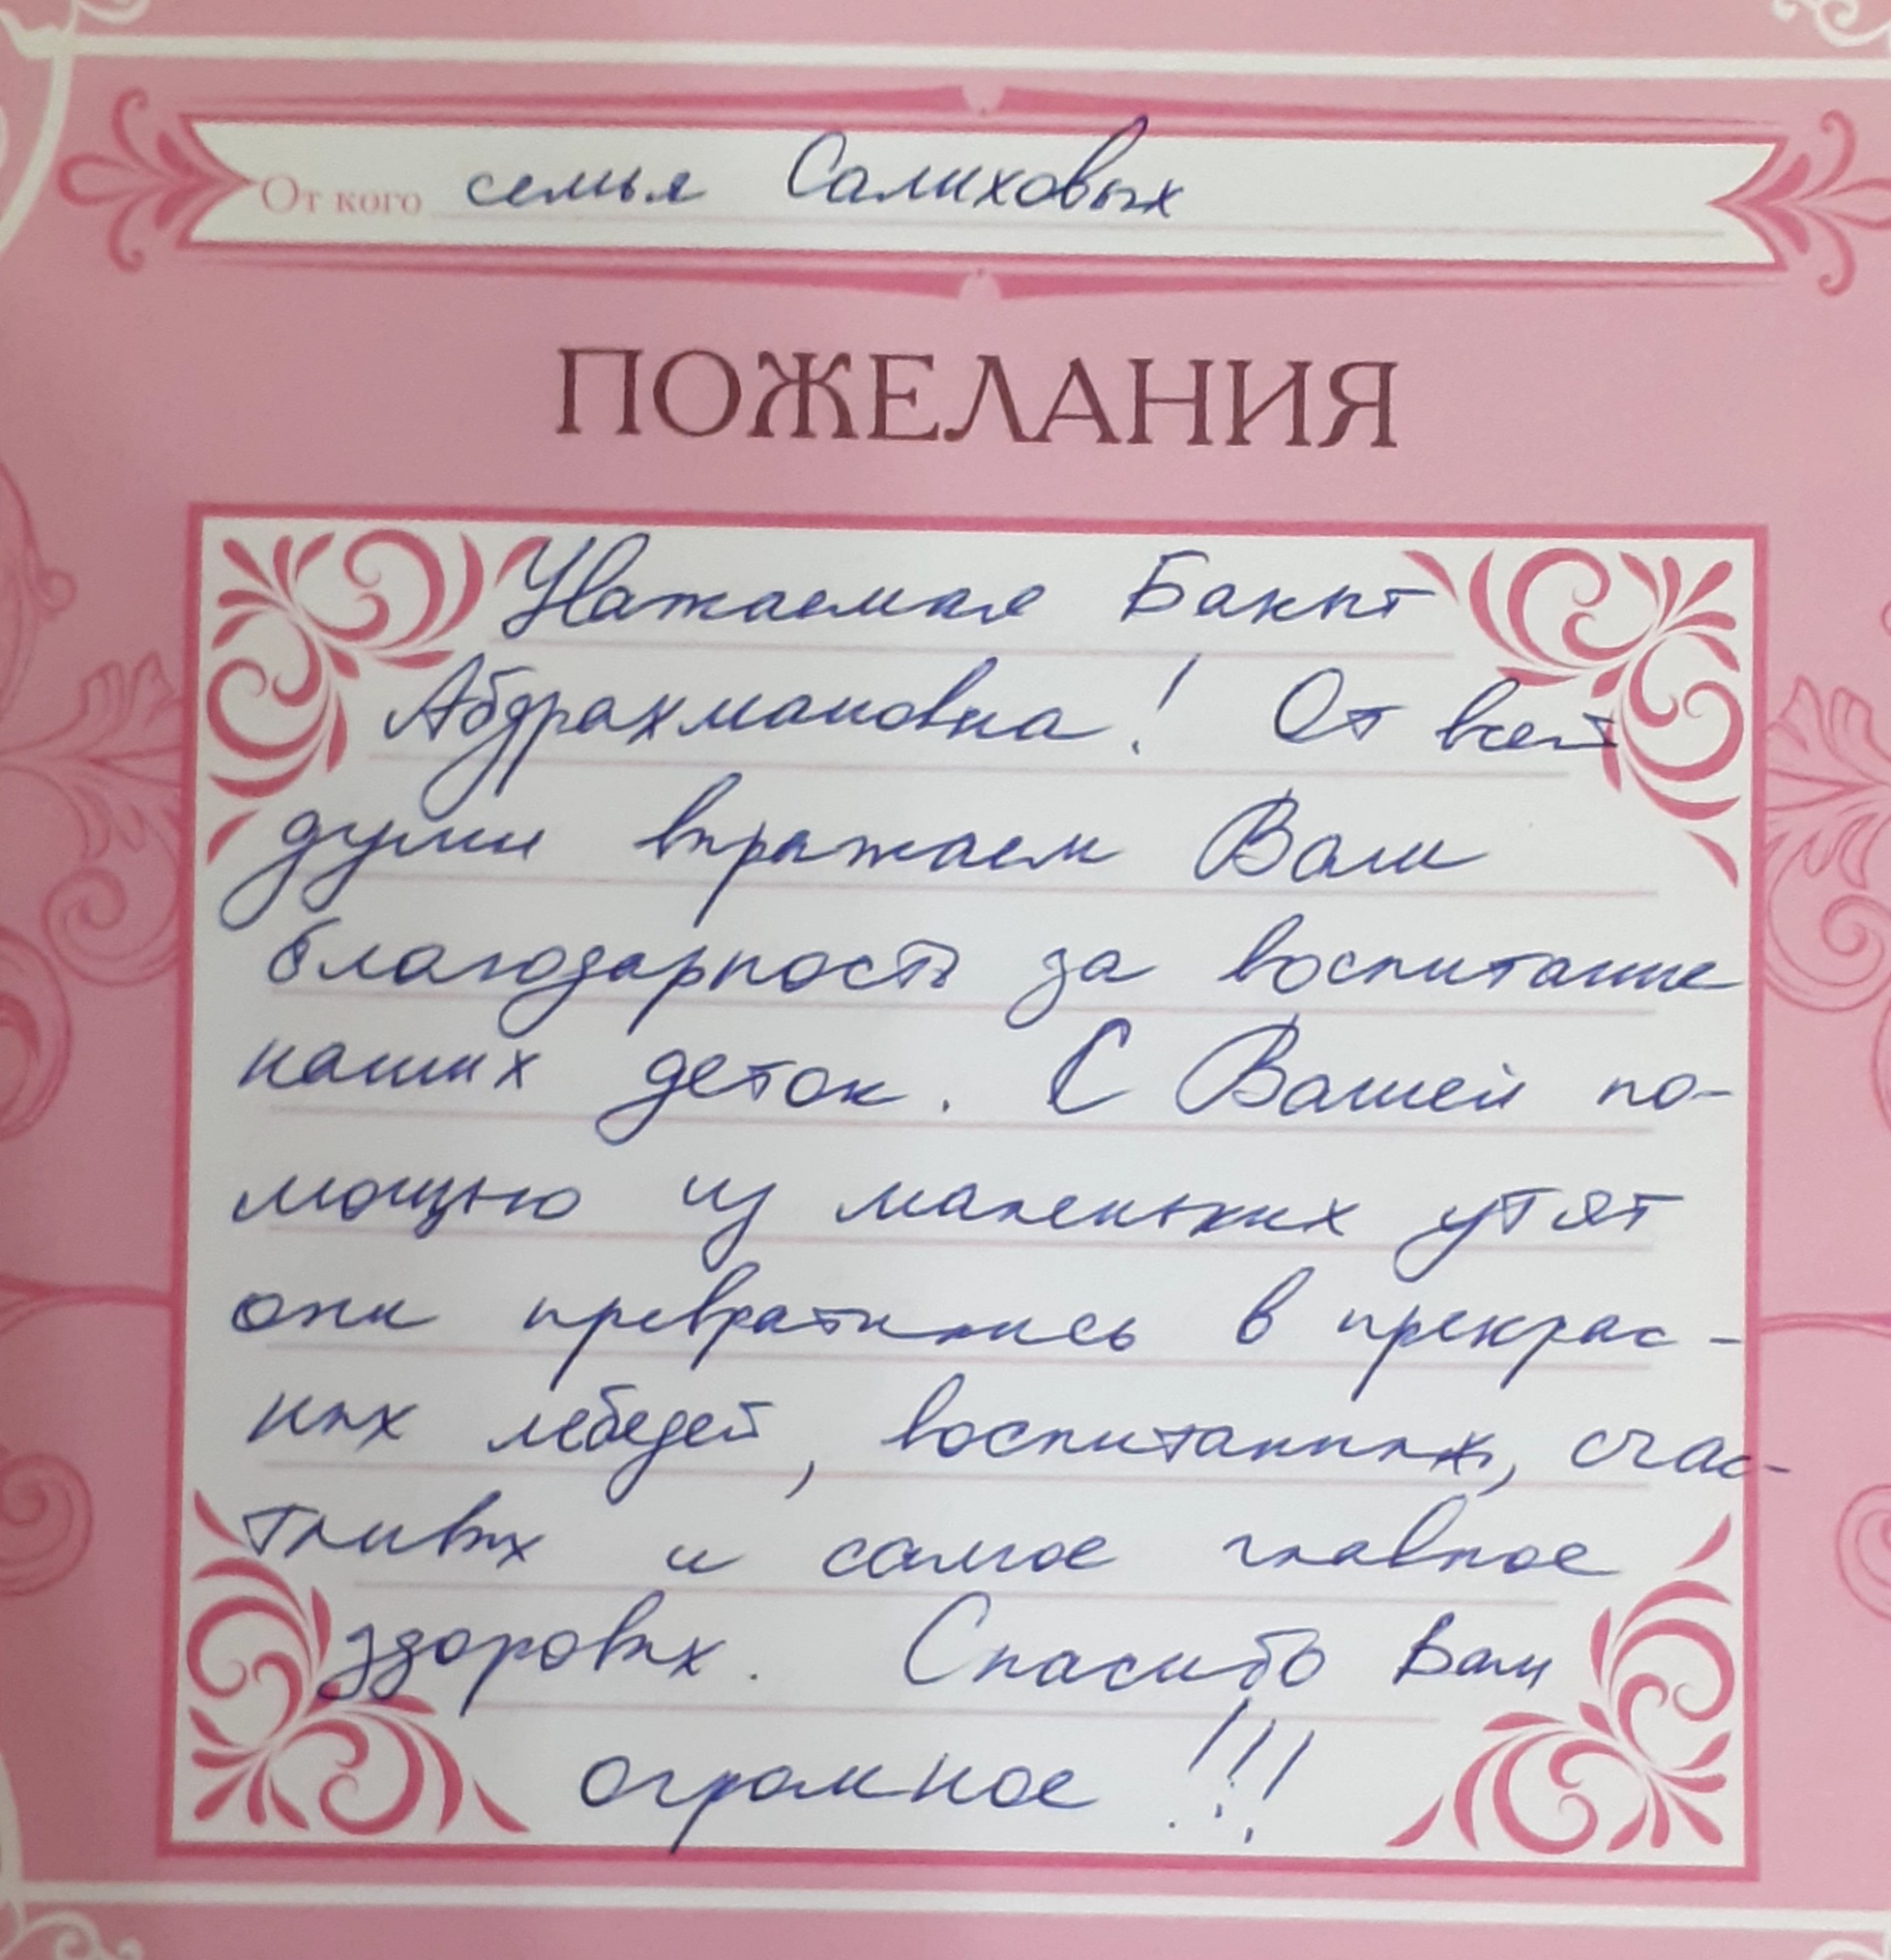 От кого семья Салиховых
ПОЖЕЛАНИЯ
Уважаемая Бакыт
Абдрахмановна! От всей
души выражаем Вам
благодарность за воспитание
наших деток. С Вашей по-
мощью из маленьких утят
они превратились в прекрас-
ных лебедей, воспитанных, счас-
тливых и самое главное
здоровых. Спасибо Вам
огромное!!!